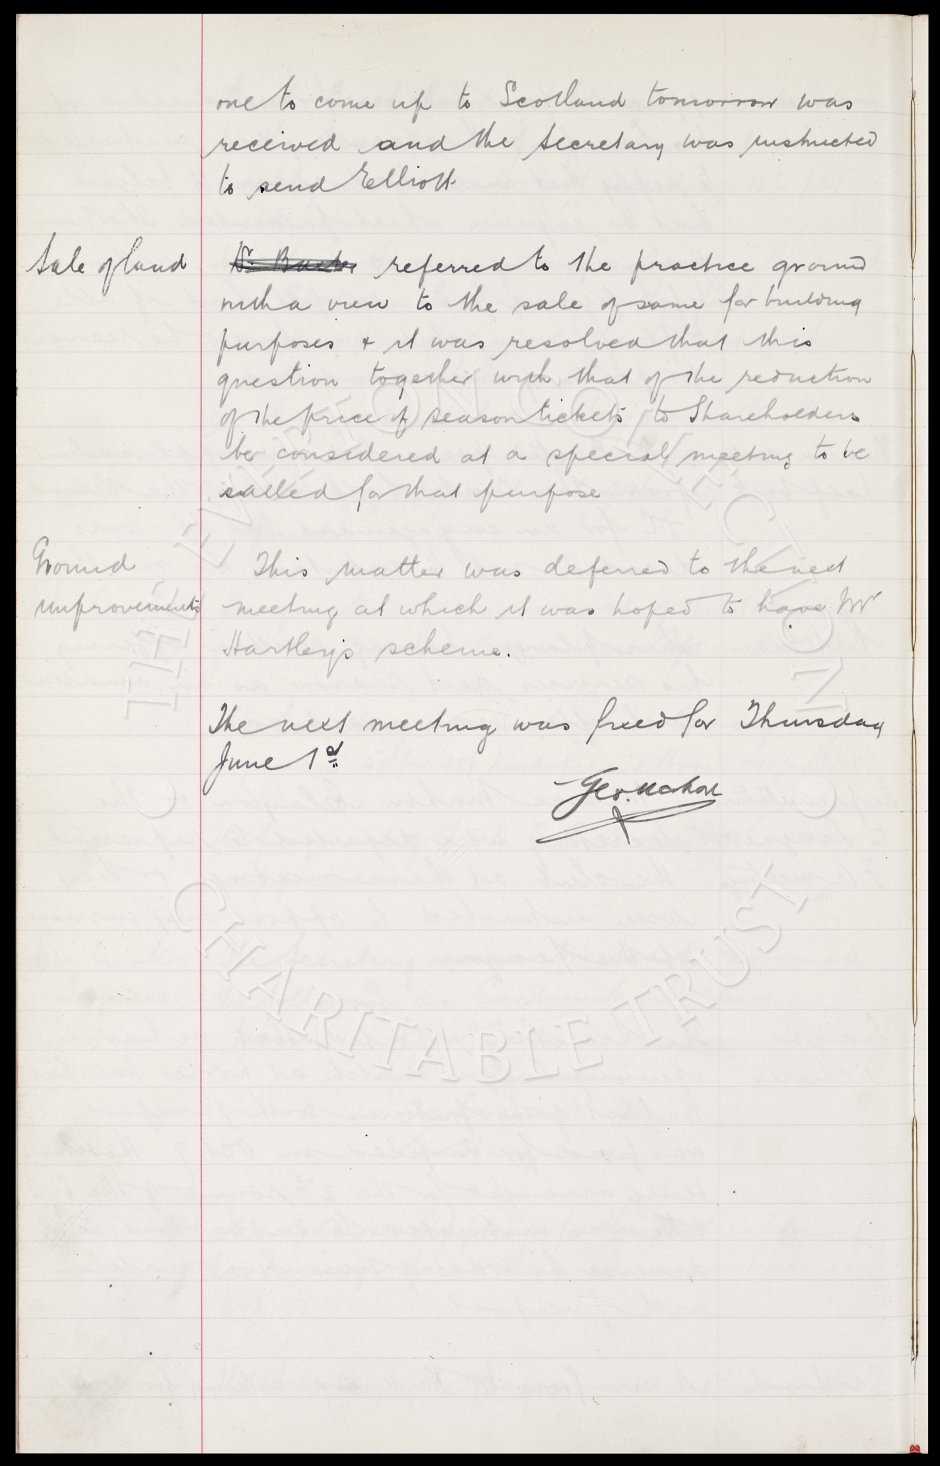 one to come up to Scotland tomorrow was
received and the Secretary was instructed
to send Elliott
Sale of land
Dr Baxter referred to the practice ground
with a view to the sale of same for building
purposes + it was resolved that this
question together with that of the reduction
of the price of season tickets to Shareholders
be considered at a special meeting to be
called for that purpose
Ground
improvements
This matter was deferred to the next
meeting at which it was hoped to have Mr
Hartley's scheme.
The next meeting was fixed for Thursday
June 1st
Geo. Mahon
THE EVERTON COLLECTION
CHARITABLE TRUST